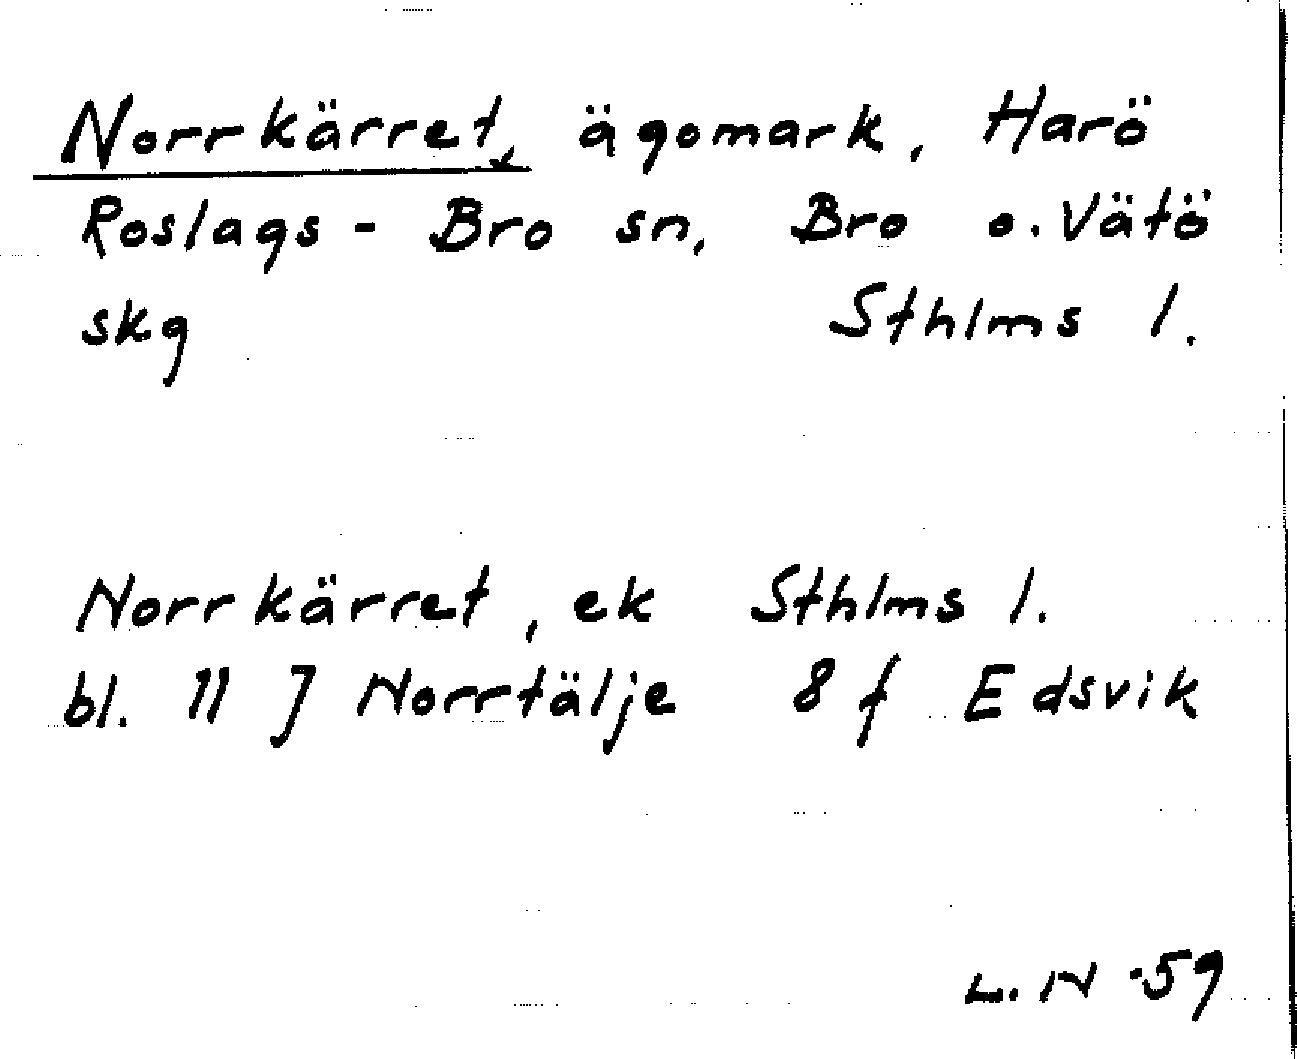 Norrkärret, ägomark, Harö
Roslags-Bro sn, Bro o. Vätö
skg Sthlms l.
Norrkärret, ek Sthlms l.
bl. 11 J Norrtälje 8 f Edsvik
L. N -59